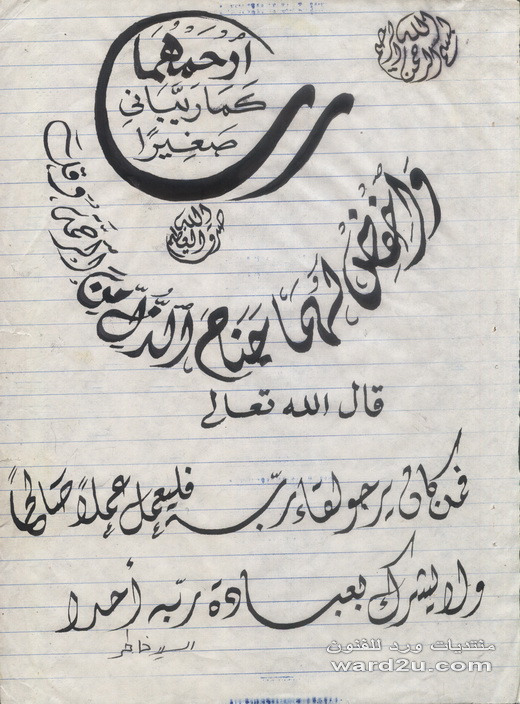 بسم الله الرحمن الرحيم
واخفض لهما جناح الذل من الرحمة وقل
رب
ارحمهما
كما ربياني
صغيرا
صدق الله العظيم
قال الله تعالى
فمن كان يرجو لقاء ربّه فليعمل عملاً صالحاً
ولا يشرك بعبادة ربّه أحدا
منتديات ورد للفنون
ward2u.com